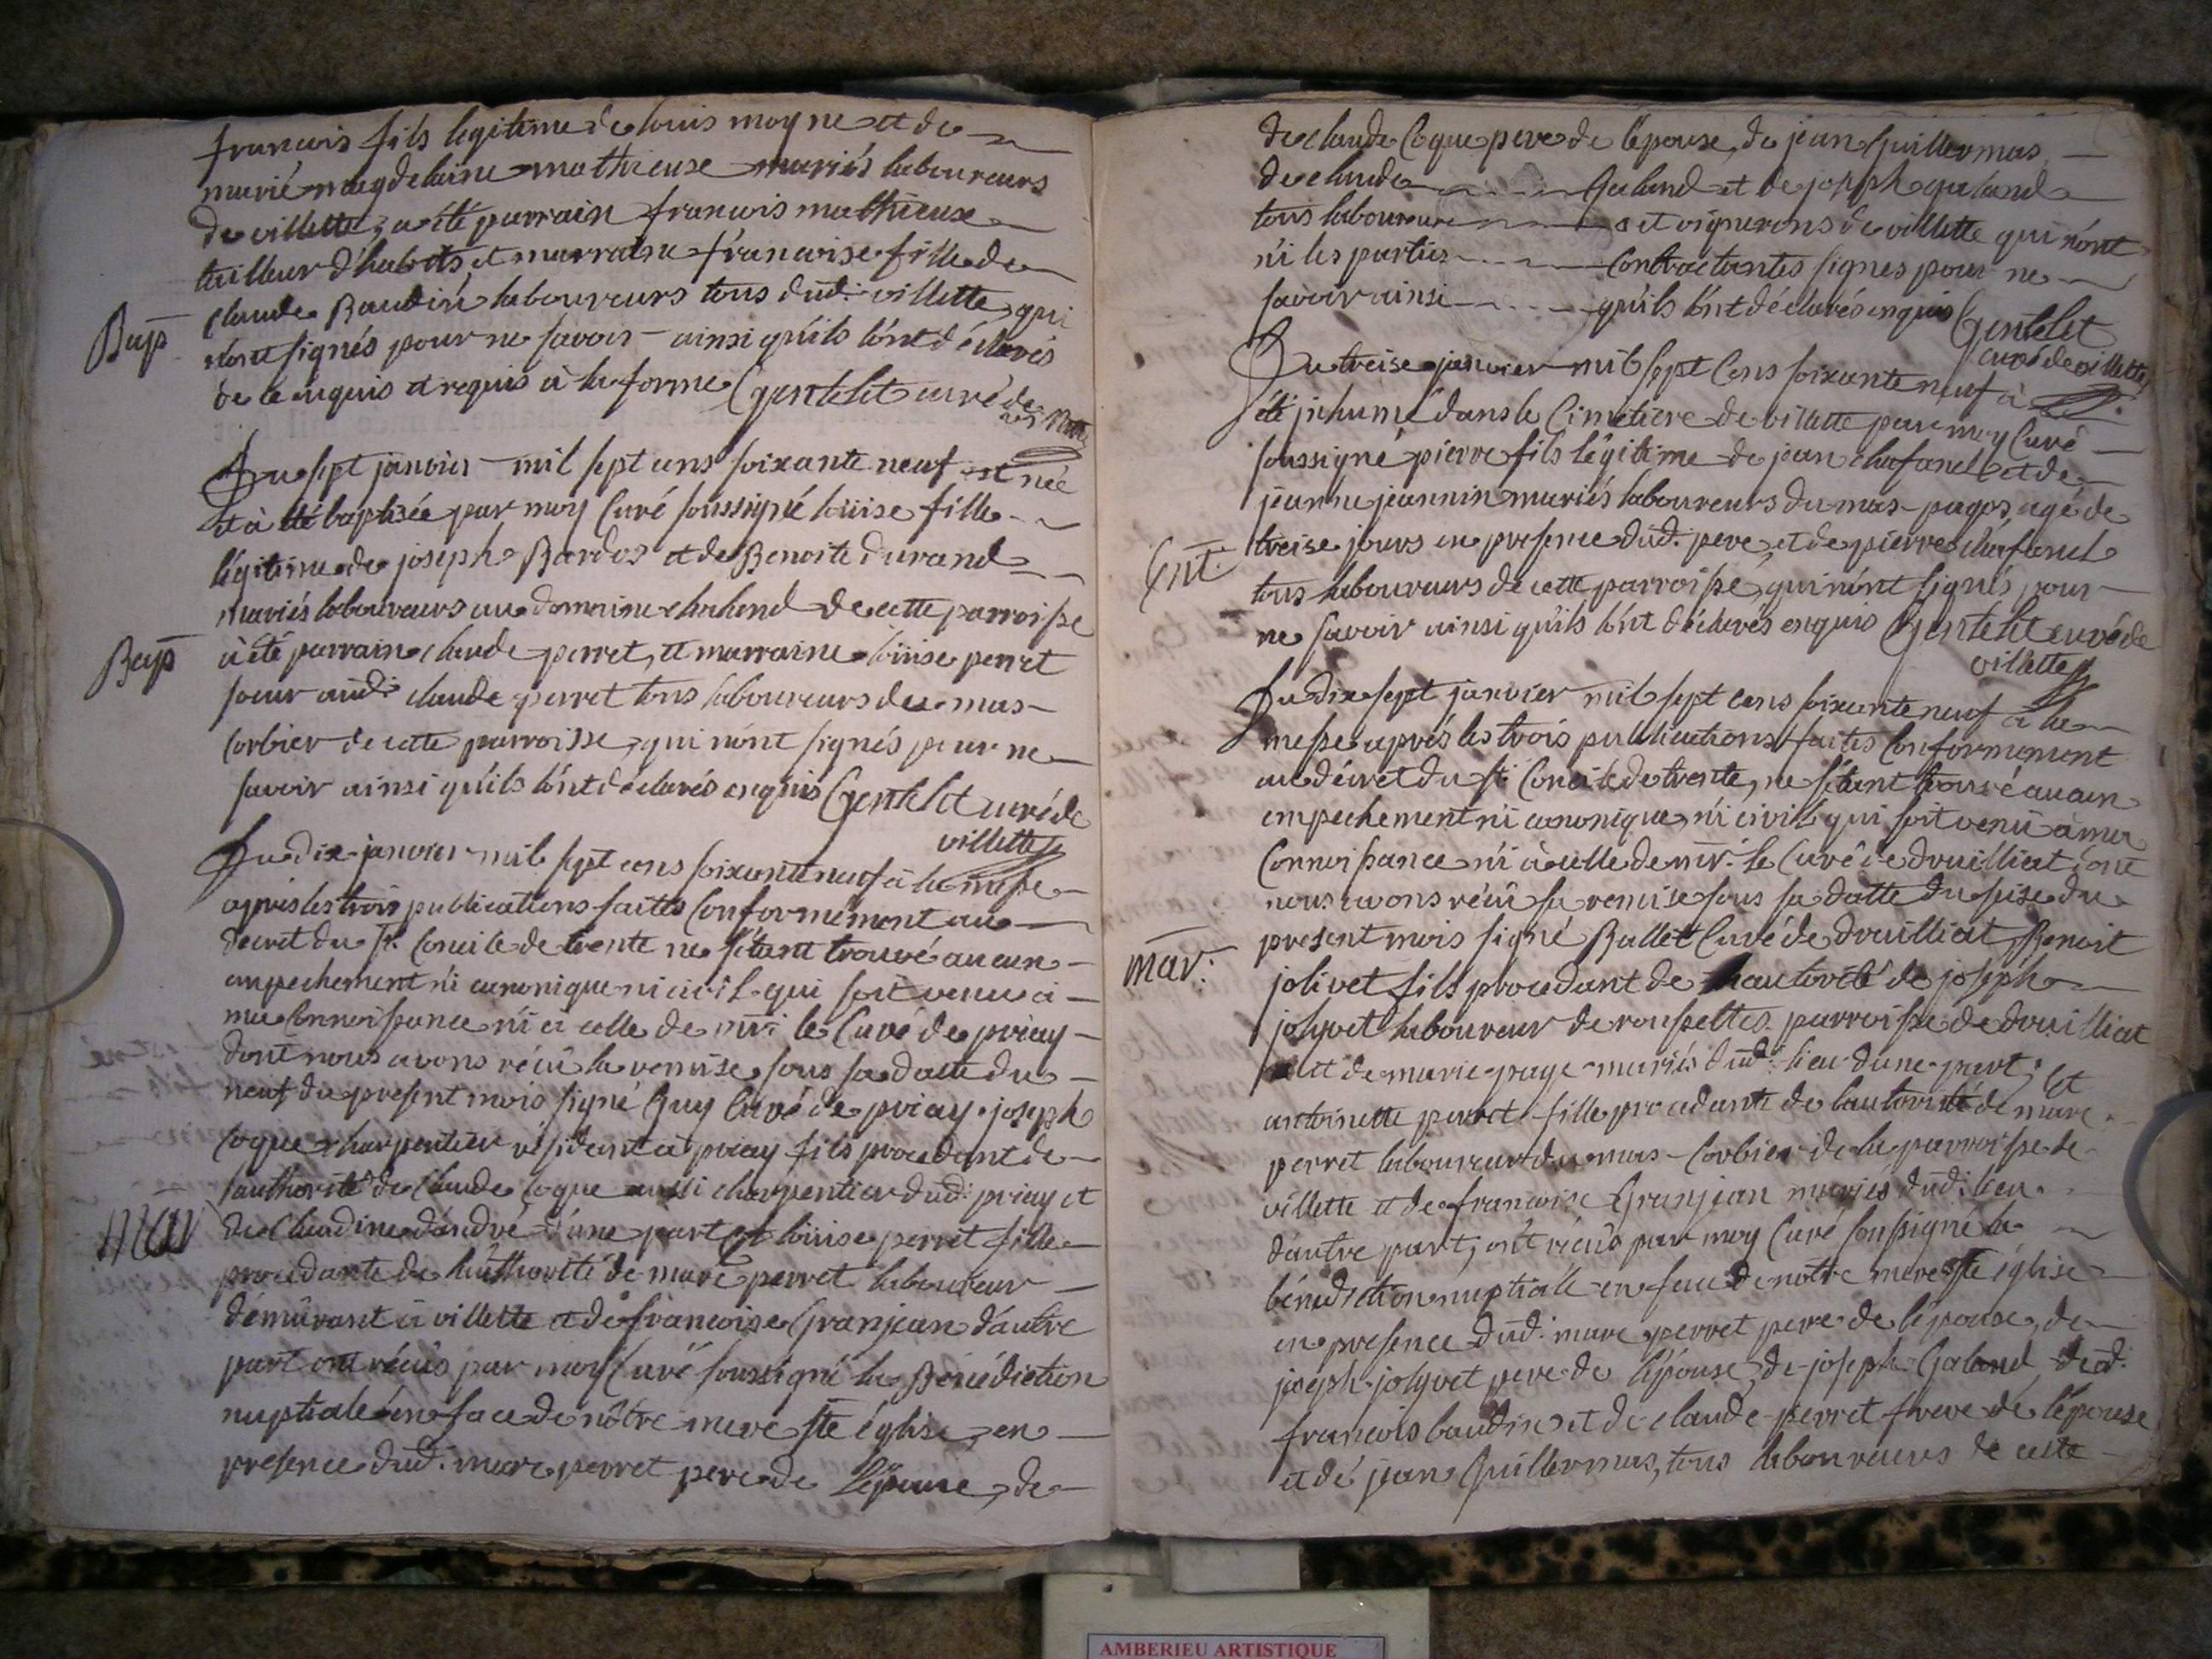 francois fils legitime de louis moyne et de
marie magdelaine mathieuse mariés laboureurs
de villette, a été parrain francois mathieux
tailleur d'habits et marraine francoise fille de
claude Baudin laboureurs tous dud. villette, qui
Bap
n'ont signés pour ne savoir ainsi qu'ils l'ont déclarés
de ce enquis et requis à la forme Gentelet curé de
villette
Du sept janvier mil sept cens soixante neuf est née
et à été baptisée par moy Curé soussigné loüise fille
légitime de joseph Bardos et de Benoite durand
mariés laboureurs au domaine chaland de cette parroisse
Bap
à été parrain claude perret, et marraine loüise perret
soeur aud. claude perret tous laboureurs du mas
Corbier de cette parroisse, qui n'ont signés pour ne
savoir ainsi qu'ils l'ont déclarés enquis Gentelet curé de
villette
Du dix janvier mil sept cens soixante neuf à la messe
après les trois publications faites Conformement au
decret du st. Concile de trente ne s'étant trouvé aucun
empechement n'i canonique ni civil qui soit venu à
ma Connoissance n'i à celle de mr. le Curé de priay
dont nous avons réçû la remise sous sa datte du
neuf du present mois signé Guy Curé de priay. joseph
Coque charpentier résident à priay fils procedant de
l'authorité de Claude Coque aussi charpentier dud. priay et
mar
de Claudine dandré d'une part Et loüise perret fille
procedante de l'authorité de marc perret laboureur
démeurant à villette et de francoise Granjean d'autre
part ont réçûs par moy Curé soussigné la Bénédiction
nuptiale en face de nôtre mere ste église, en
presence dud. marc perret pere de l'épouse, de
de claude Coque pere de l'épouse, de jean Guillermas
de claude Galand et de joseph galand
tous laboureurs et vignerons de villette qui n'ont
n'i les parties Contractantes signes pour ne
savoir ainsi qu'ils l'ont déclarés enquis Gentelet
curé de villette
Du treise janvier mil sept Cens soixante neuf à
été inhumé dans le Cimetiere de villette par moy Curé
soussigné pierre fils légitime de jean chafanel et de
jeanne jeannin mariés laboureurs du mas pagos, agé de
Ent.
treise jours en presence dud. pere, et de pierre chafanel
tous laboureurs de cette parroisse, qui n'ont signés pour
ne savoir ainsi qu'ils l'ont déclarés enquis Gentelet curé de
villette
Du dix sept janvier mil sept cens soixante neuf à la
messe aprés les trois publications faites Conformement
au décret du st. Concile de trente, ne s'étant trouvé aucun
empechement n'i canonique, n'i civil qui soit venû à ma
Connoissance n'i à celle de mr. le Curé de druilliat dont
nous avons réçû sa remise sous sa datte du seise du
present mois signé Ballet Curé de druilliat, Benoit
mar:
jolivet fils procedant de l'autorité de joseph
jolyvet laboureur de rousselles parroisse de druilliat
et de marie page mariés dud. lieu d'une part; Et
antoinette perret fille procedante de l'autorité de marc
perret laboureur du mas Corbier de la parroisse de
villette et de francoise Granjean mariés dud. lieu
d'autre part, ont réçûs par moy Curé soussigné la
bénédiction nuptiale en face de notre mere ste église
en presence dud. marc perret pere de l'épouse, de
joseph jolyvet pere de l'épouse, de joseph Galand, de
françois baudin et de claude perret frere de l'épouse
et de jean Guillermas, tous laboureurs de cette
AMBERIEU ARTISTIQUE